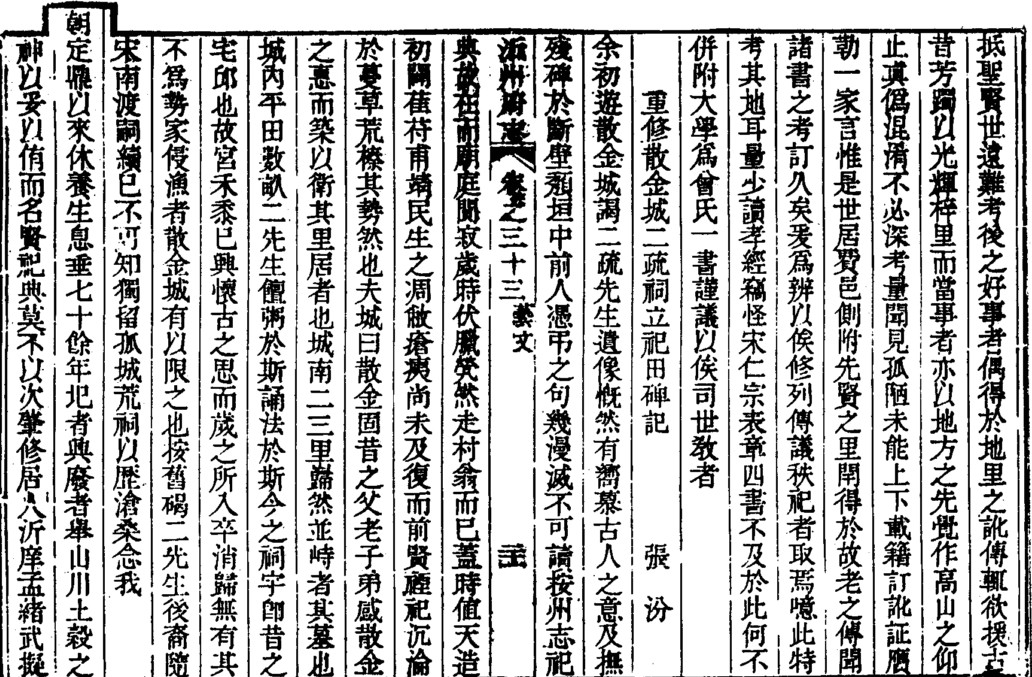 抵聖賢世遠難考後之好事者偶得於地里之訛傳輒欲援古
昔芳躅以光輝梓里而當事者亦以地方之先覺作高山之仰
止真僞混淆不必深考量聞見孤陋未能上下載籍訂訛証贋
勒一家言惟是世居費邑側附先賢之里閈得於故老之傳聞
諸書之考訂久矣爰爲辨以俟修列傳議秩祀者取焉噫此特
考其地耳量少讀孝經竊怪宋仁宗表章四書不及於此何不
併附大學爲曾氏一書謹議以俟司世敎者
重修散金城二疏祠立祀田碑記 張汾
余初遊散金城謁二疏先生遺像慨然有嚮慕古人之意及撫
殘碑於斷壁頽垣中前人憑弔之句幾漫滅不可讀按州志祀
沂州府志 卷之三十三 藝文 三
典故在而廟庭闃寂歲時伏臘煢然走村翁而已蓋時値天造
初闢萑苻甫靖民生之凋敝瘡痍尚未及復而前賢禋祀沉淪
於蔓草荒榛其勢然也夫城曰散金固昔之父老子弟感散金
之惠而築以衛其里居者也城南二三里巋然並峙者其墓也
城內平田數畝二先生饘粥於斯誦法於斯今之祠宇卽昔之
宅邱也故宮禾黍已興懷古之思而歲之所入卒消歸無有其
不爲勢家侵漁者散金城有以限之也按舊碣二先生後裔隨
宋南渡嗣續已不可知獨留孤城荒祠以歷滄桑念我
朝定鼎以來休養生息垂七十餘年圯者興廢者舉山川土穀之
神以妥以侑而名賢祀典莫不以次肇修居人沂庠孟緒武擬